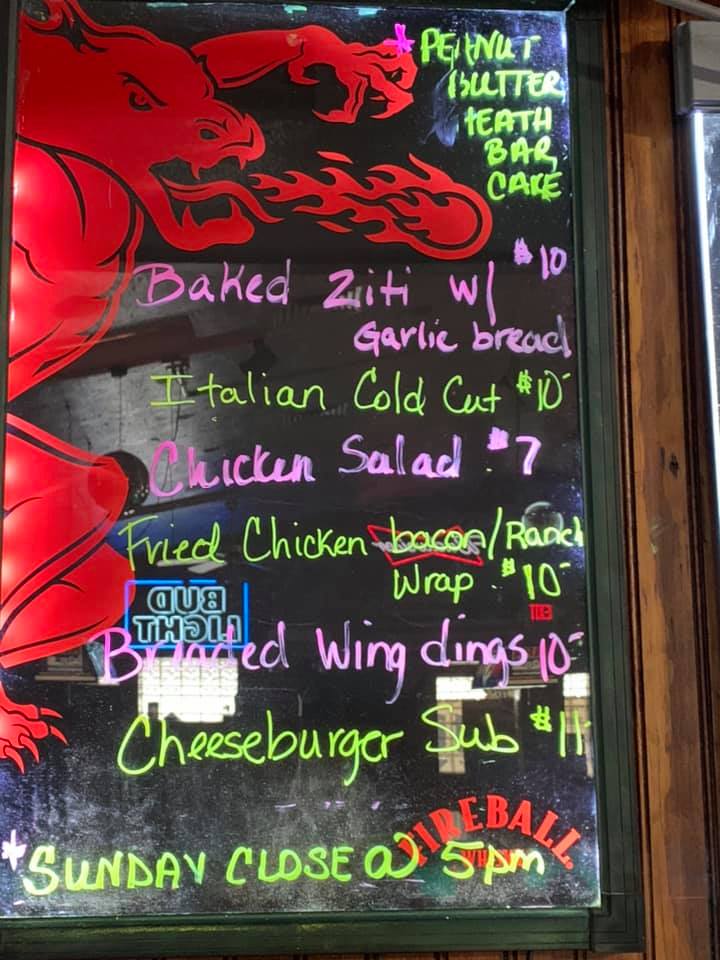 * PEANUT
BUTTER
HEATH
BAR
CAKE
Baked Ziti w/ $10
Garlic bread
Italian Cold Cut $10-
Chicken Salad $7
Fried Chicken bacon/Ranch
Wrap $10-
BUD
LIGHT
Breaded Wing dings 10-
Cheeseburger Sub $11-
FIREBALL
* SUNDAY CLOSE @ 5pm